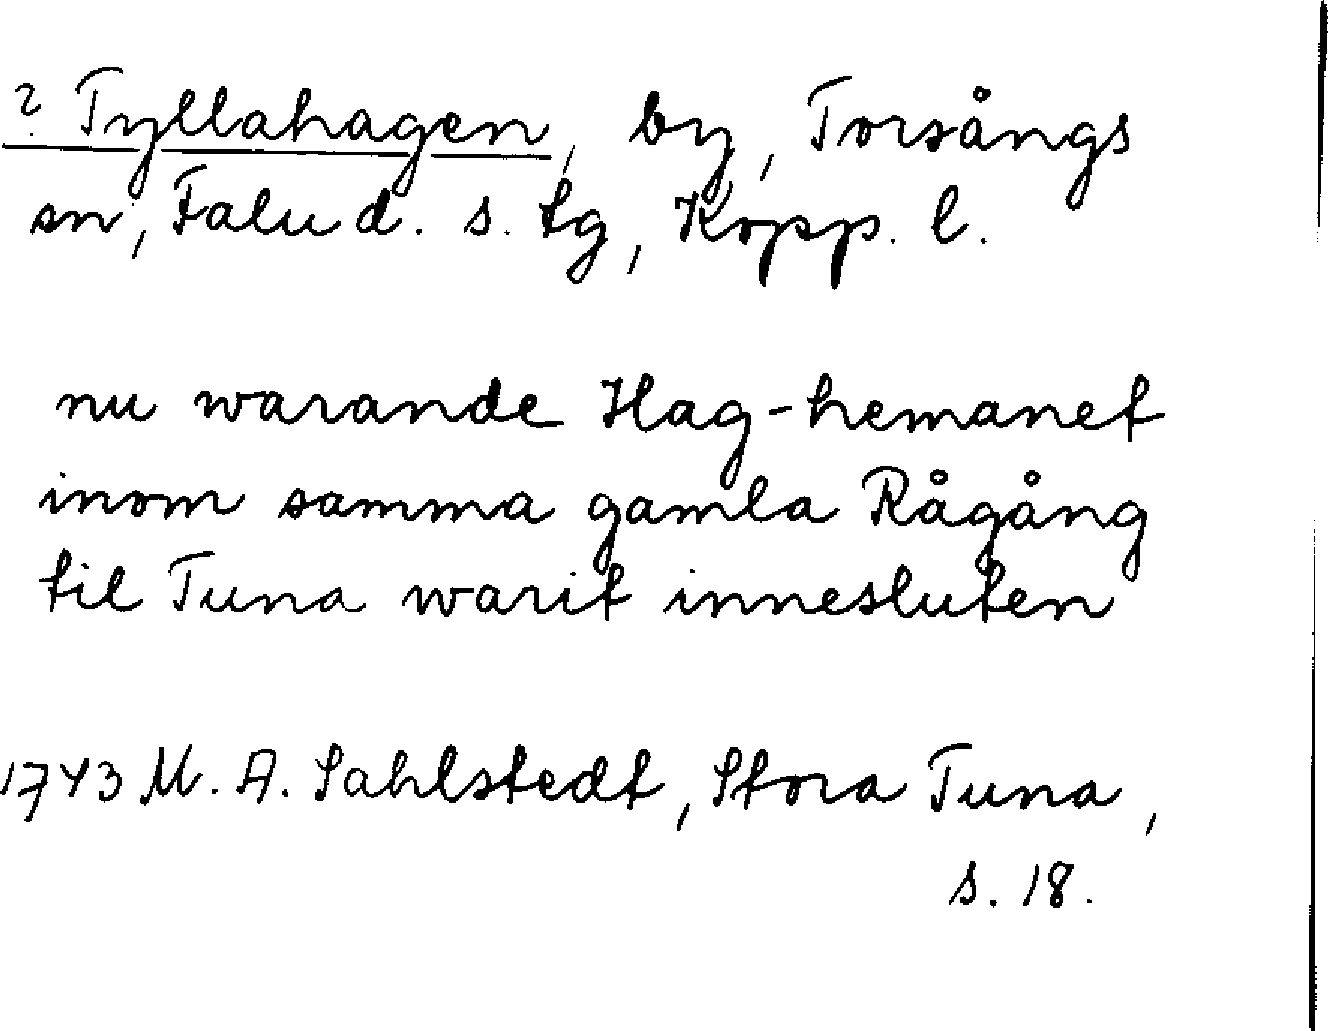 ? Tyllahagen, by, Torsångs
sn, Falu d. s. tg, Kopp. l.
nu warande Hag-hemanet
inom samma gamla Rågång
til Tuna warit innesluten
1743 M. A. Sahlstedt, Stora Tuna,
s. 18.